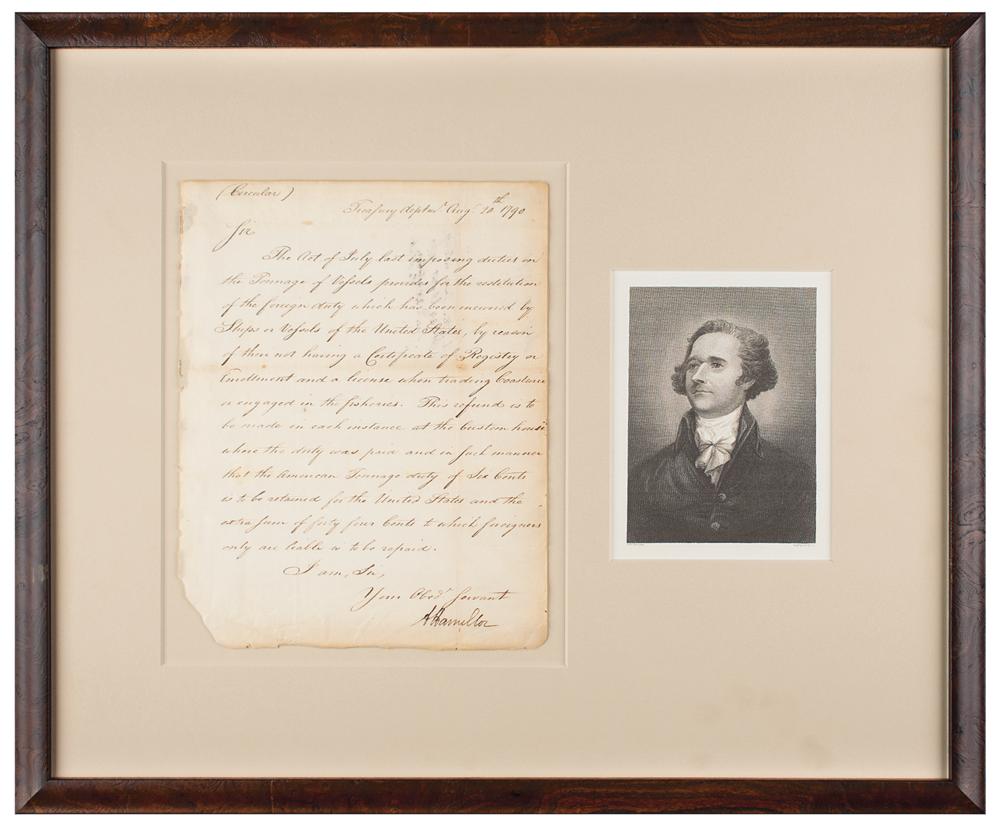 (Circular)
Treasury depmt Aug. 10th 1790
Sir
The Act of July last imposing duties on
the Tonnage of Vessels provides for the restitution
of the foreign duty which has been incurred by
Ships or Vessels of the United States, by reason
of their not having a Certificate of Registry or
Enrollment and a license when trading Coastwise
or engaged in the fisheries. This refund is to
be made in each instance at the Custom house
where the duty was paid and in such manner
that the American Tonnage duty of Six Cents
is to be retained for the United States and the
extra sum of forty four Cents to which foreigners
only are liable is to be repaid.
I am, Sir,
Your Obedt. Servant
A Hamilton